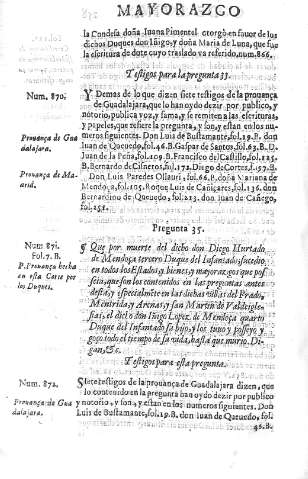 MAYORAZGO
la Condesa doña Juana Pimentel otorgò en fauor de los
dichos Duques don Iñigo, y doña Maria de Luna, que fue
la escritura de dote cuyo traslado va referido, num. 866.
Testigos para la pregunta 33.
Num. 870.
Prouança de Gua
dalajara.
Prouança de Ma
drid.
Y Demas de lo que dizen siete testigos de la prouança
de Guadalajara, que lo han oydo dezir por publico, y
notorio, publica voz y fama, y se remiten a las escrituras,
y papeles, que refiere la pregunta, y son, y estan en los nu
meros siguientes. Don Luis de Bustamante, fol. 19. B. don
Iuan de Quevedo, fol. 46. B. Gaspar de Santos, fol. 63. B. D.
Iuan de la Peña, fol. 109. B. Francisco del Castillo, fol. 125.
B. Bernardo de Cisneros, fol. 172. Diego de Cortes, fol. 57. B.
Don Luis Paredes Ollauri, fol. 66. B. doña Mariana de
Mendo a, fol. 105. Roque Luis de Cañiçares, fol. 136. don
Bernardino de Quevedo, fol. 213. don Iuan de Cañego,
fol. 151.
Pregunta 35.
Num 871.
Fol. 7. B.
P. Prouança hecha
en esta Corte por
los Duques.
Que por muerte del dicho don Diego Hurtado
de Mendoça tercero Duque del Infantado sucedio
en todos los Estados y bienes, y mayorazgos que pos
seìa, que son los contenidos en las preguntas antes
desta, y especialmente en las dichas villas del Prado,
Mentrida, y Arenas, y san Martin de Valdeigle-
sias, el dicho don Iñigo Lopez de Mendoça quarto
Duque del Infantado su hijo, y los tuuo y posseyo y
gozò todo el tiempo de su vida, hasta que murio. Di-
gan, &c.
Testigos para esta pregunta.
Num. 872.
Prouança de Gua
dalajara.
Siete testigos de la prouança de Guadalajara dizen, que
lo contenido en la pregunta han oydo dezir por publico
y notorio, y son, y estan en los numeros siguientes. Don
Luis de Bustamante, fol. 19. B. don Iuan de Quevedo, fol.
46. B.